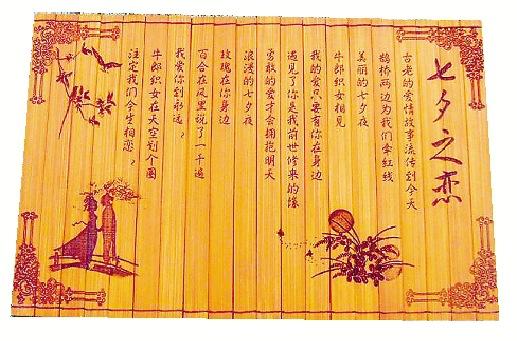 七夕之恋
古老的爱情故事流传到今天
鹊桥两边为我们牵红线
美丽的七夕夜
牛郎织女相见
我的爱只要有你在身边
遇见了你是我前世修来的缘
勇敢的爱才会拥抱明天
浪漫的七夕夜
玫瑰在你身边
百合在风里说了一千遍
我爱你到永远
牛郎织女在天空划个圆
注定我们今生相恋